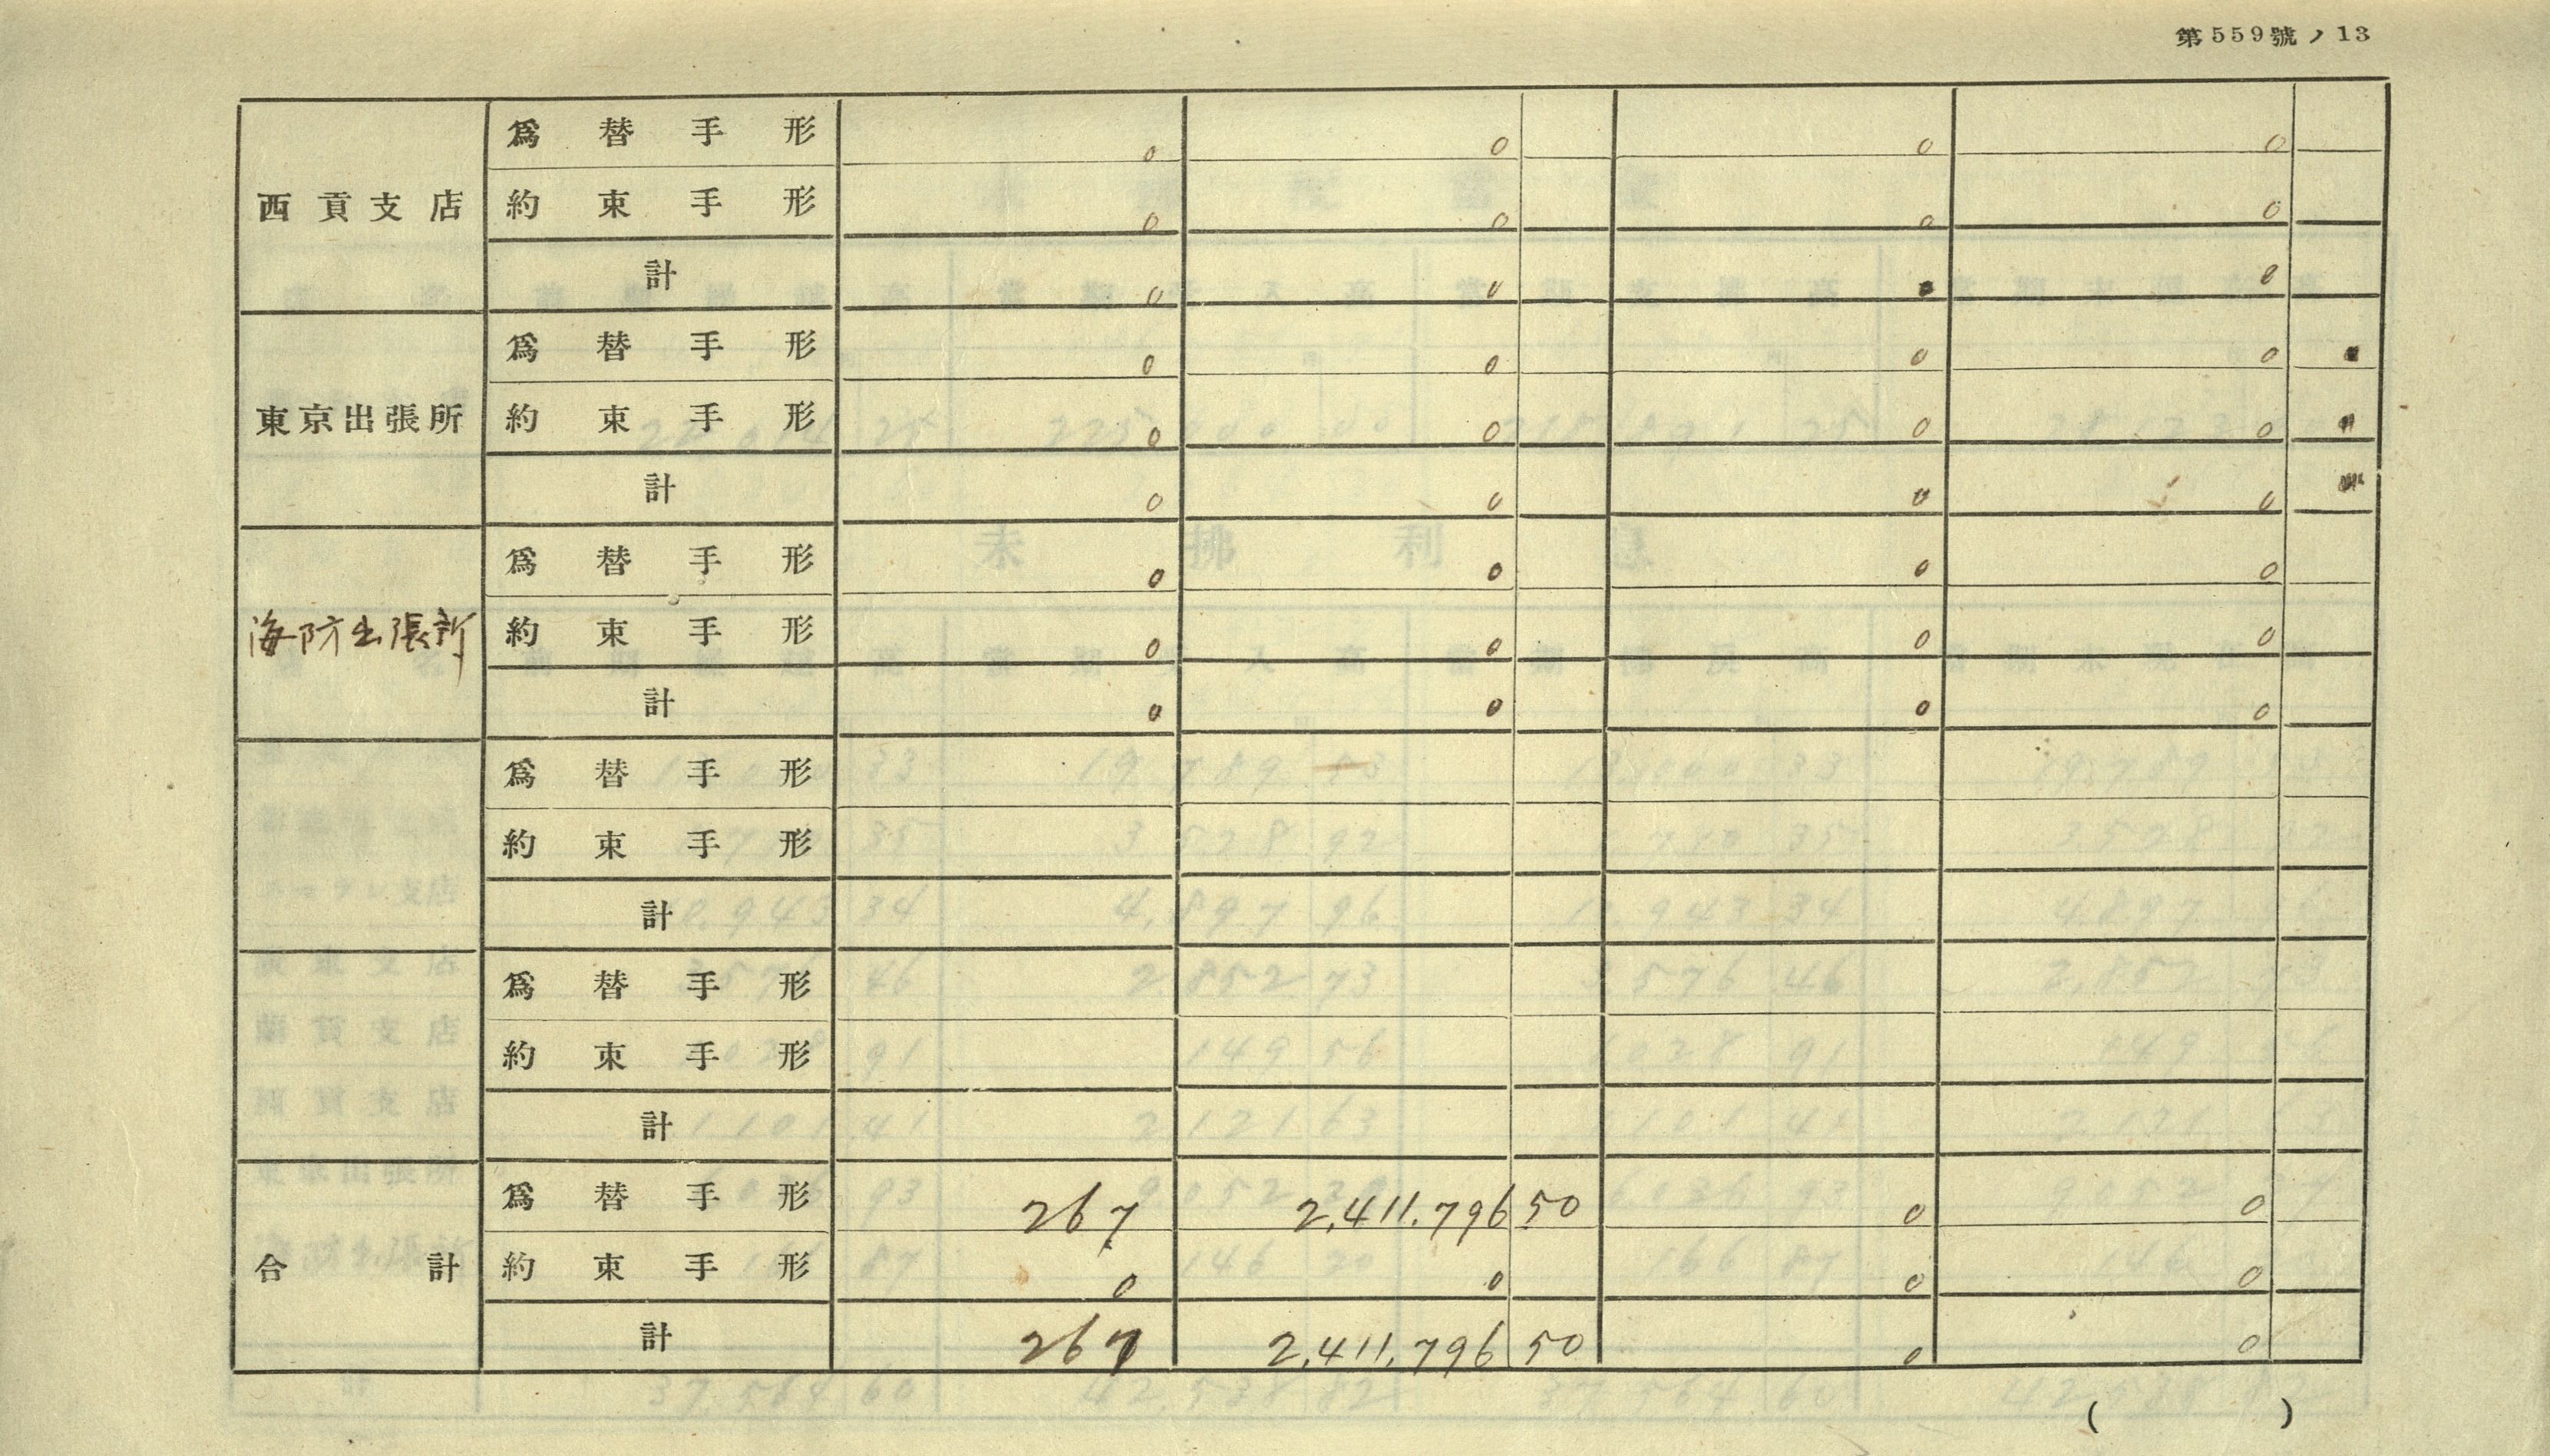 第559號ノ13
西貢支店 爲替手形 0 0 0 0
約束手形 0 0 0 0
計 0 0 0 0
東京出張所 爲替手形 0 0 0 0
約束手形 0 0 0 0
計 0 0 0 0
海防出張所 爲替手形 0 0 0 0
約束手形 0 0 0 0
計 0 0 0 0
爲替手形
約束手形
計
爲替手形
約束手形
計
合計 爲替手形 267 2,411,796 50 0 0
約束手形 0 0 0 0
計 267 2,411,796 50 0 0
( )